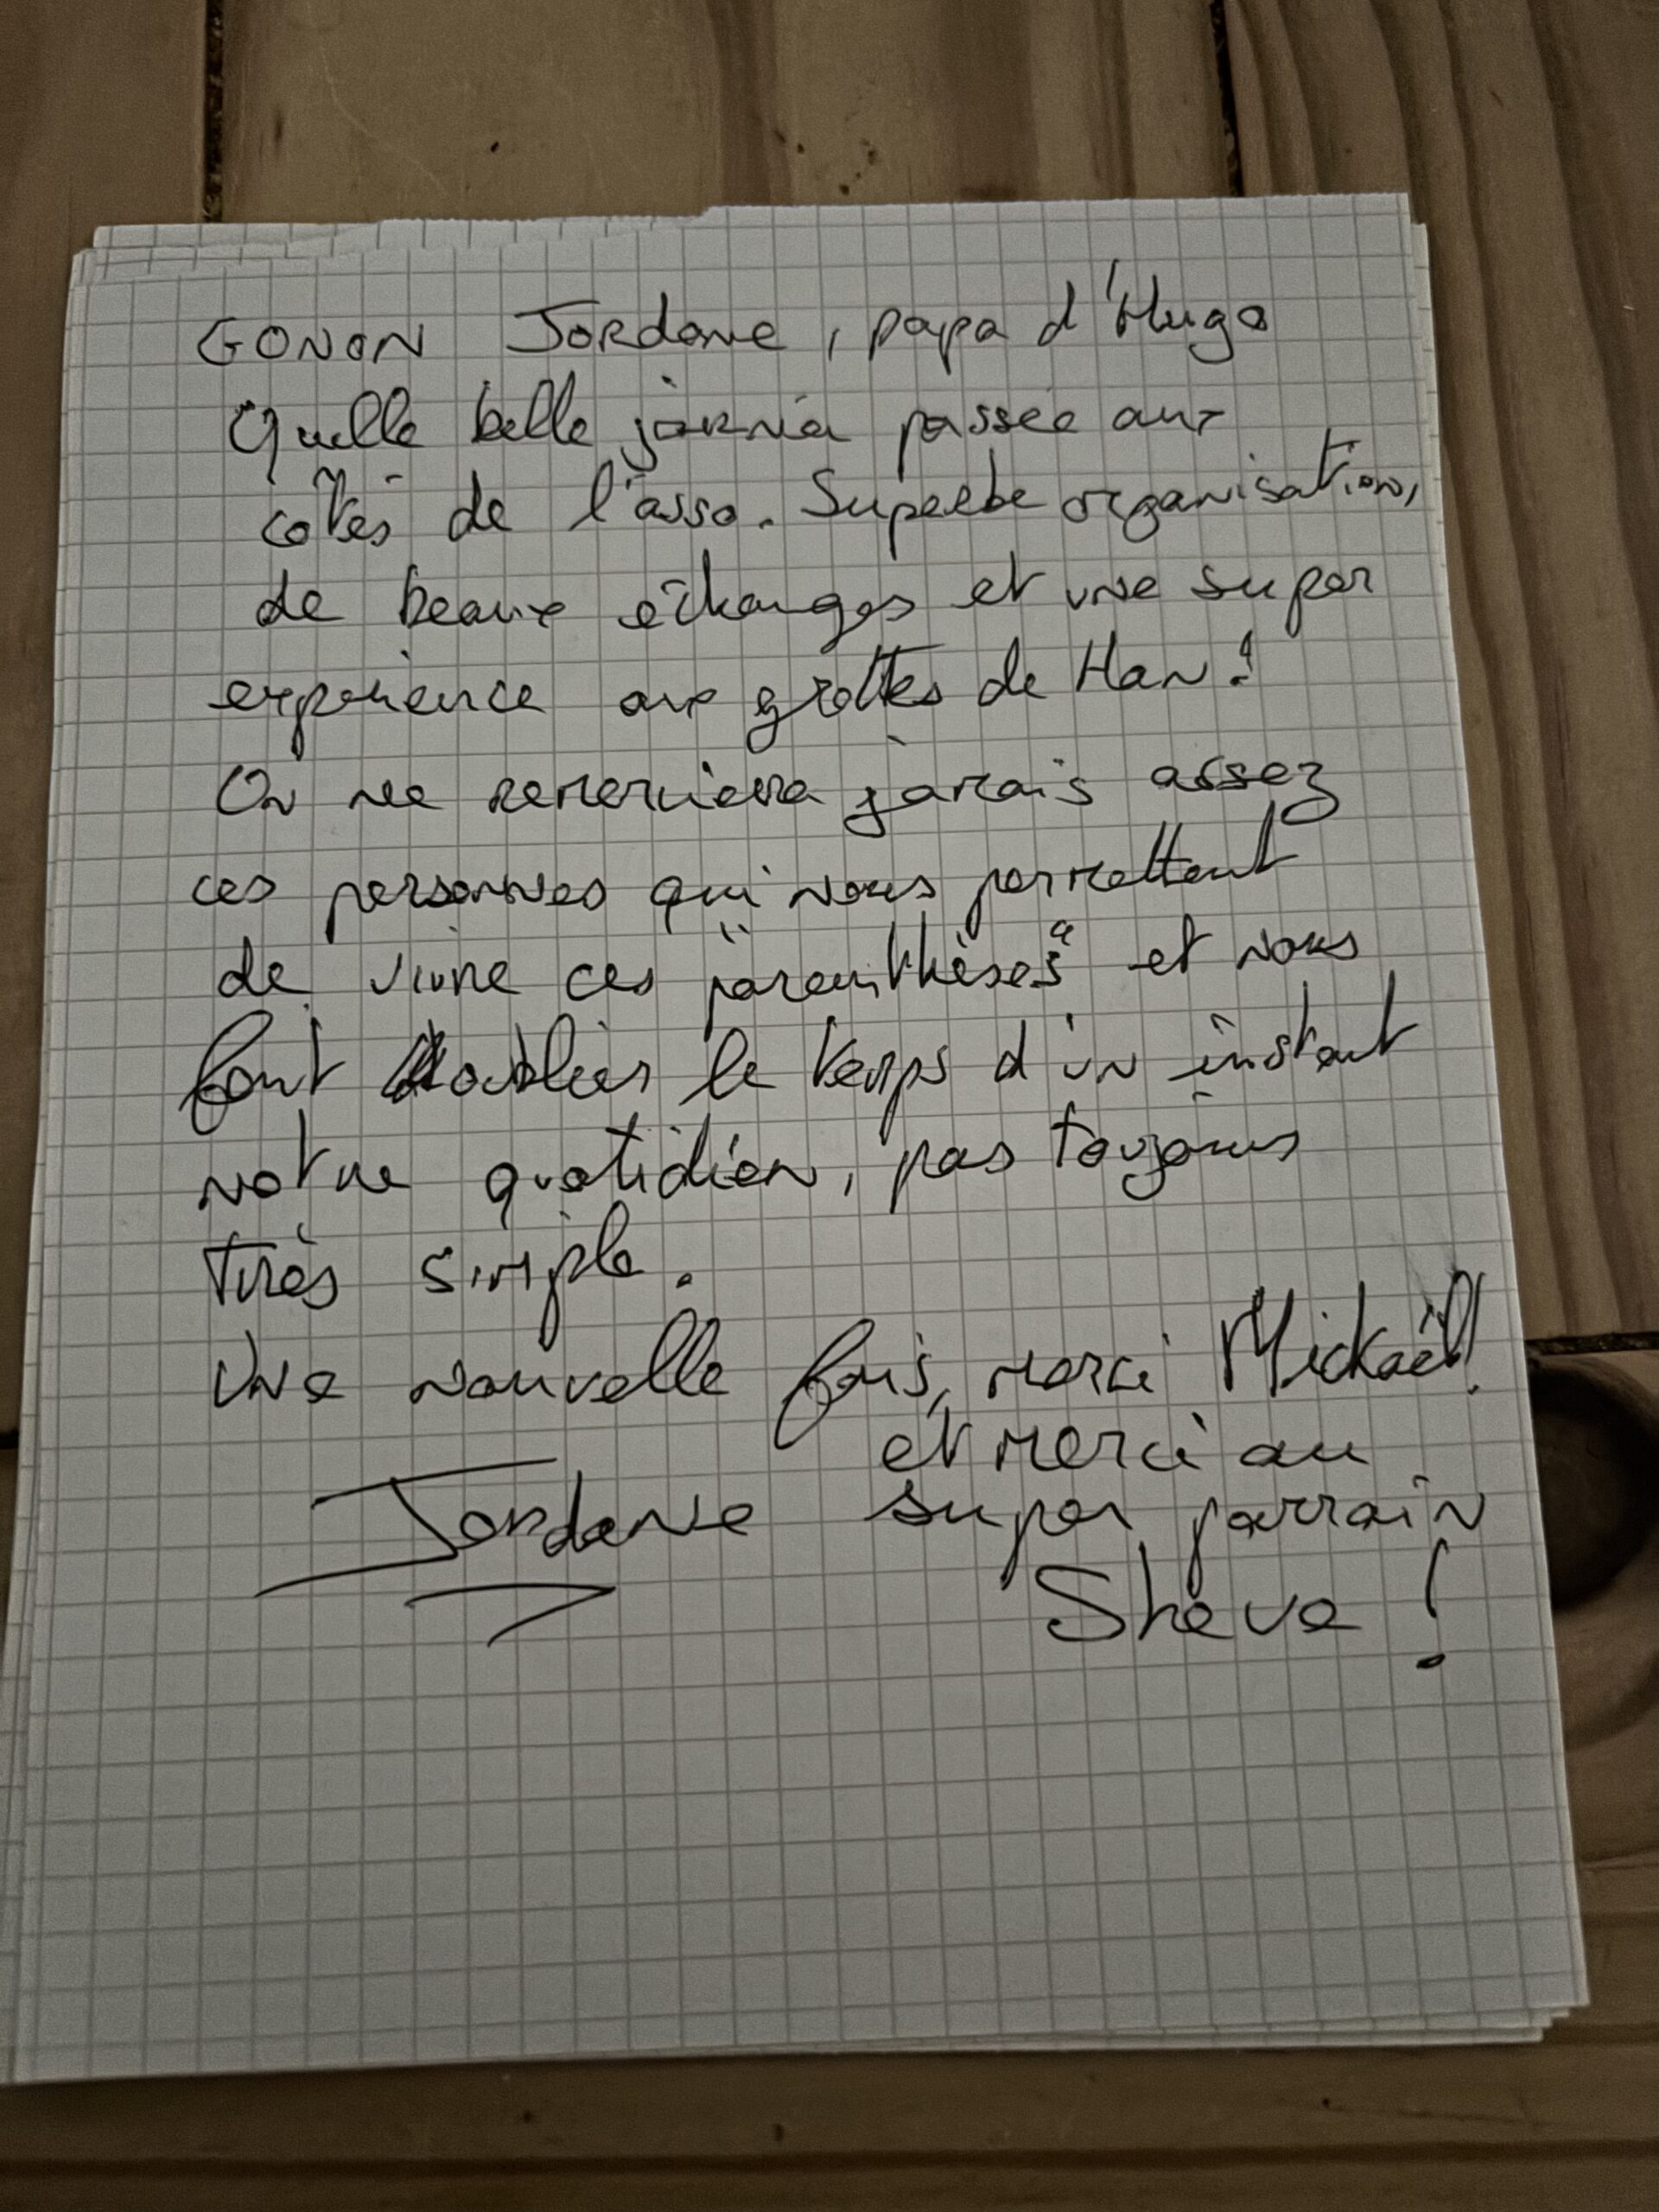 GONON Jordane, papa d'Hugo
Quelle belle journée passée aux
côtés de l'asso. Superbe organisation,
de beaux échanges et une super
expérience aux grottes de Han !
On ne remerciera jamais assez
ces personnes qui nous permettent
de vivre ces "parenthèses" et nous
font oublier le temps d'un instant
notre quotidien, pas toujours
très simple.
Une nouvelle fois, merci Mickaël!
et merci au
super parrain
Steve !
Jordane